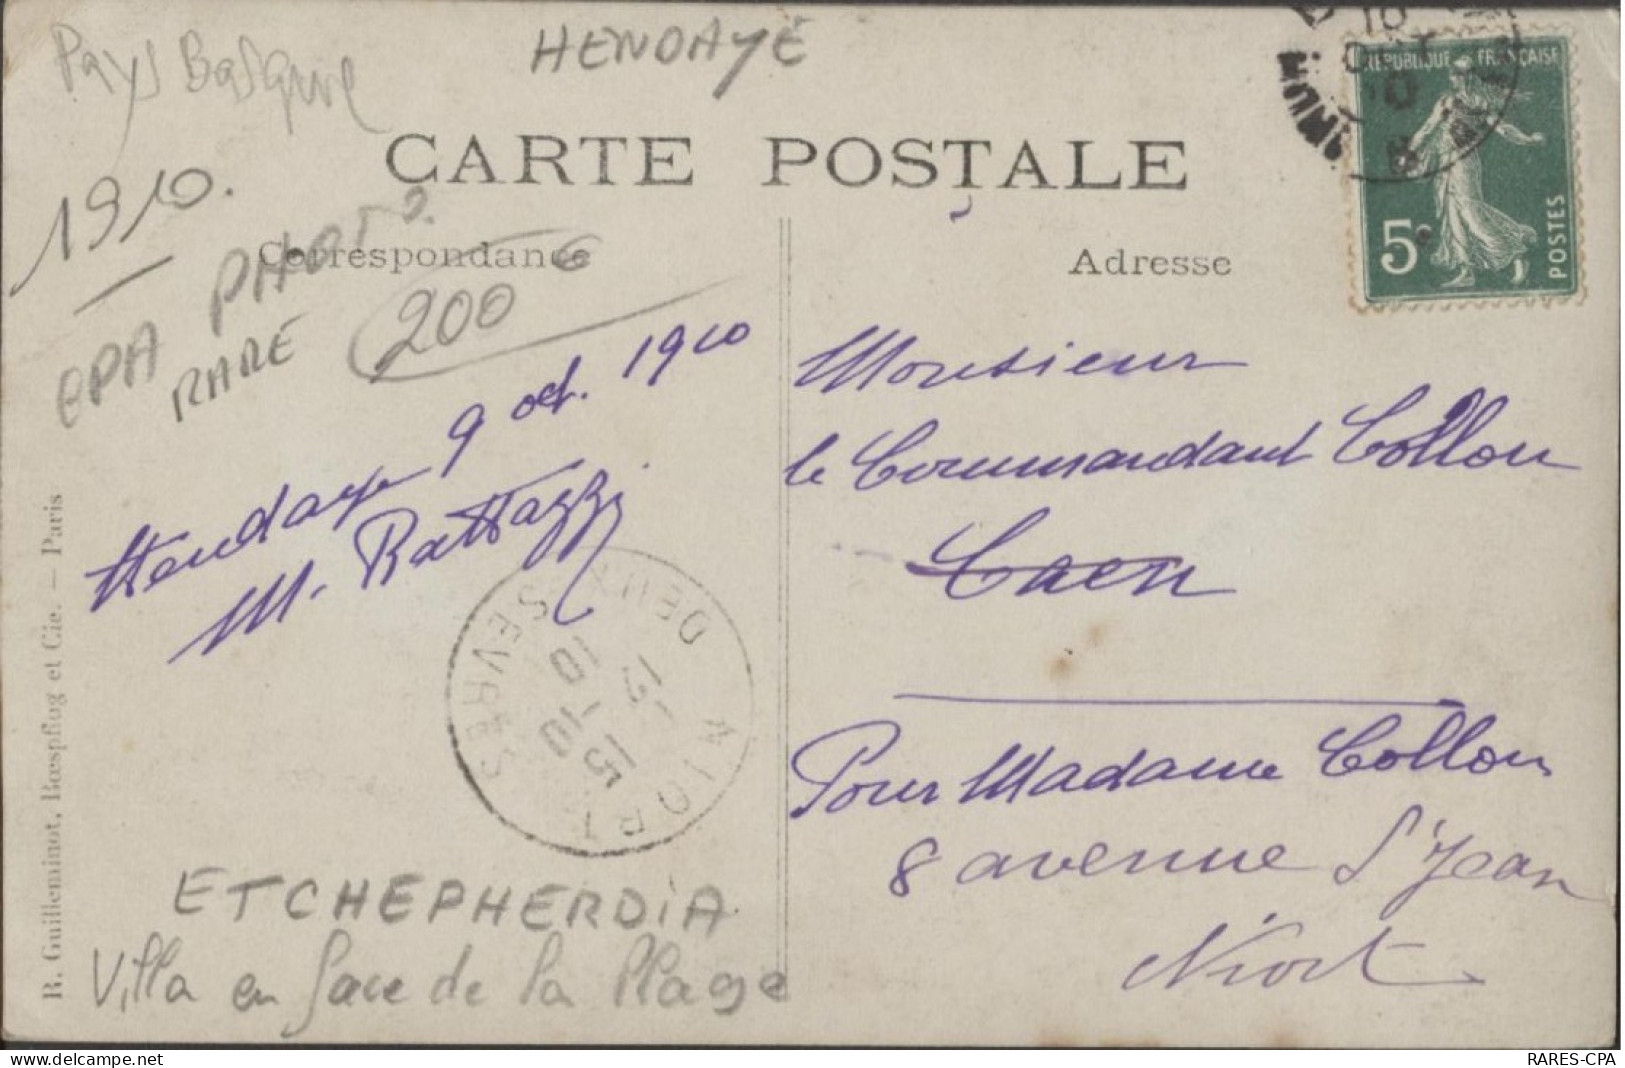 Pays Basque
HENDAYE
1910.
CARTE POSTALE
Correspondance
Adresse
CPA PHOTO.
RARE
200 €
REPUBLIQUE FRANÇAISE
5c
POSTES
Hendaye 9 oct. 1910
M. Rattazzi
Monsieur
le Commandant Collon
Caen
Pour Madame Collon
8 avenue St Jean
Niort
NIORT
DEUX SEVRES
15-10
10
ETCHEPHERDIA
Villa en face de la Plage
R. Guilleminot, Bœspflug et Cie. — Paris
RARES-CPA